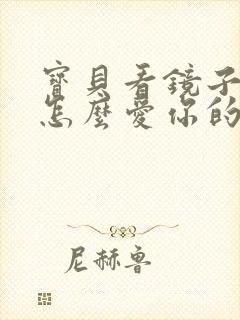 寶貝看鏡子
怎麼愛你的
尼赫魯